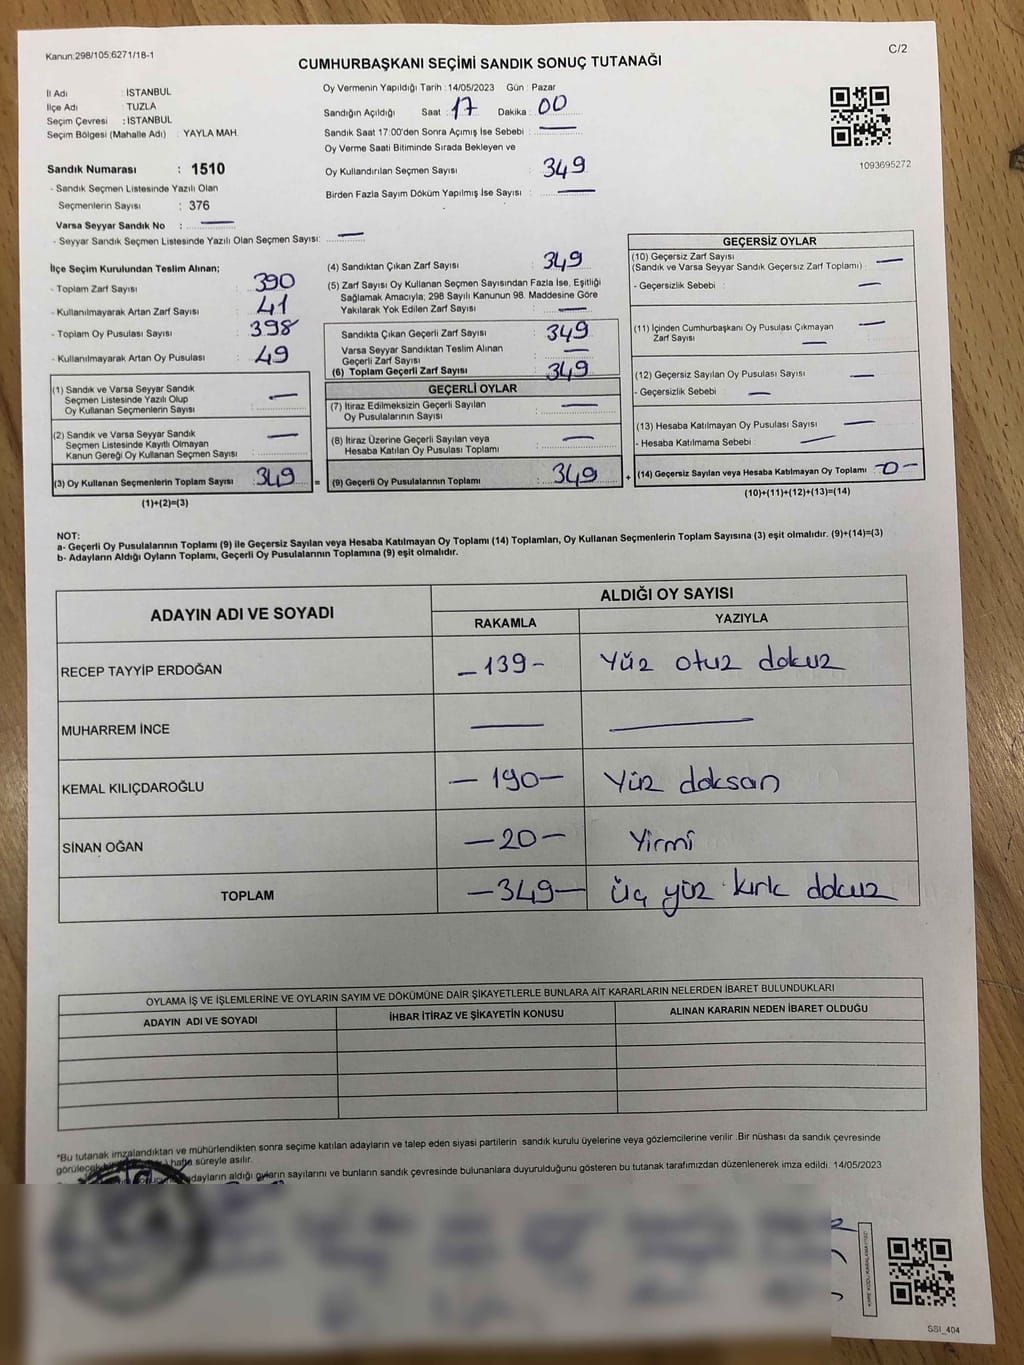 Kanun:298/105;6271/18-1
C/2
CUMHURBAŞKANI SEÇİMİ SANDIK SONUÇ TUTANAĞI
İl Adı : İSTANBUL
İlçe Adı : TUZLA
Seçim Çevresi : İSTANBUL
Seçim Bölgesi (Mahalle Adı) : YAYLA MAH.
Sandık Numarası : 1510
- Sandık Seçmen Listesinde Yazılı Olan
Seçmenlerin Sayısı : 376
Varsa Seyyar Sandık No : —
- Seyyar Sandık Seçmen Listesinde Yazılı Olan Seçmen Sayısı: —
Oy Vermenin Yapıldığı Tarih : 14/05/2023 Gün : Pazar
Sandığın Açıldığı Saat : 17 Dakika : 00
Sandık Saat 17:00'den Sonra Açımış İse Sebebi : —
Oy Verme Saati Bitiminde Sırada Bekleyen ve
Oy Kullandırılan Seçmen Sayısı : 349
Birden Fazla Sayım Döküm Yapılmış İse Sayısı : —
1093695272
İlçe Seçim Kurulundan Teslim Alınan;
- Toplam Zarf Sayısı : 390
- Kullanılmayarak Artan Zarf Sayısı : 41
- Toplam Oy Pusulası Sayısı : 398
- Kullanılmayarak Artan Oy Pusulası : 49
(1) Sandık ve Varsa Seyyar Sandık
Seçmen Listesinde Yazılı Olup
Oy Kullanan Seçmenlerin Sayısı : —
(2) Sandık ve Varsa Seyyar Sandık
Seçmen Listesinde Kayıtlı Olmayan
Kanun Gereği Oy Kullanan Seçmen Sayısı : —
(3) Oy Kullanan Seçmenlerin Toplam Sayısı : 349 =
(1)+(2)=(3)
(4) Sandıktan Çıkan Zarf Sayısı : 349
(5) Zarf Sayısı Oy Kullanan Seçmen Sayısından Fazla İse, Eşitliği
Sağlamak Amacıyla; 298 Sayılı Kanunun 98. Maddesine Göre
Yakılarak Yok Edilen Zarf Sayısı : —
Sandıkta Çıkan Geçerli Zarf Sayısı : 349
Varsa Seyyar Sandıktan Teslim Alınan
Geçerli Zarf Sayısı : —
(6) Toplam Geçerli Zarf Sayısı : 349
GEÇERLİ OYLAR
(7) İtiraz Edilmeksizin Geçerli Sayılan
Oy Pusulalarının Sayısı : —
(8) İtiraz Üzerine Geçerli Sayılan veya
Hesaba Katılan Oy Pusulası Toplamı : —
(9) Geçerli Oy Pusulalarının Toplamı : 349 +
GEÇERSİZ OYLAR
(10) Geçersiz Zarf Sayısı : —
(Sandık ve Varsa Seyyar Sandık Geçersiz Zarf Toplamı)
- Geçersizlik Sebebi : —
(11) İçinden Cumhurbaşkanı Oy Pusulası Çıkmayan : —
Zarf Sayısı —
(12) Geçersiz Sayılan Oy Pusulası Sayısı : —
- Geçersizlik Sebebi : —
(13) Hesaba Katılmayan Oy Pusulası Sayısı : —
- Hesaba Katılmama Sebebi : —
(14) Geçersiz Sayılan veya Hesaba Katılmayan Oy Toplamı : -0-
(10)+(11)+(12)+(13)=(14)
NOT:
a- Geçerli Oy Pusulalarının Toplamı (9) ile Geçersiz Sayılan veya Hesaba Katılmayan Oy Toplamı (14) Toplamları, Oy Kullanan Seçmenlerin Toplam Sayısına (3) eşit olmalıdır. (9)+(14)=(3)
b- Adayların Aldığı Oyların Toplamı, Geçerli Oy Pusulalarının Toplamına (9) eşit olmalıdır.
ADAYIN ADI VE SOYADI ALDIĞI OY SAYISI
RAKAMLA YAZIYLA
RECEP TAYYİP ERDOĞAN -139- Yüz otuz dokuz
MUHARREM İNCE — —
KEMAL KILIÇDAROĞLU -190- Yüz doksan
SİNAN OĞAN -20- Yirmi
TOPLAM -349- Üç yüz kırk dokuz
OYLAMA İŞ VE İŞLEMLERİNE VE OYLARIN SAYIM VE DÖKÜMÜNE DAİR ŞİKAYETLERLE BUNLARA AİT KARARLARIN NELERDEN İBARET BULUNDUKLARI
ADAYIN ADI VE SOYADI İHBAR İTİRAZ VE ŞİKAYETİN KONUSU ALINAN KARARIN NEDEN İBARET OLDUĞU
*Bu tutanak imzalandıktan ve mühürlendikten sonra seçime katılan adayların ve talep eden siyasi partilerin sandık kurulu üyelerine veya gözlemcilerine verilir .Bir nüshası da sandık çevresinde
hafta süreyle asılır.
adayların aldığı oyların sayılarını ve bunların sandık çevresinde bulunanlara duyurulduğunu gösteren bu tutanak tarafımızdan düzenlenerek imza edildi. 14/05/2023
SSI_404